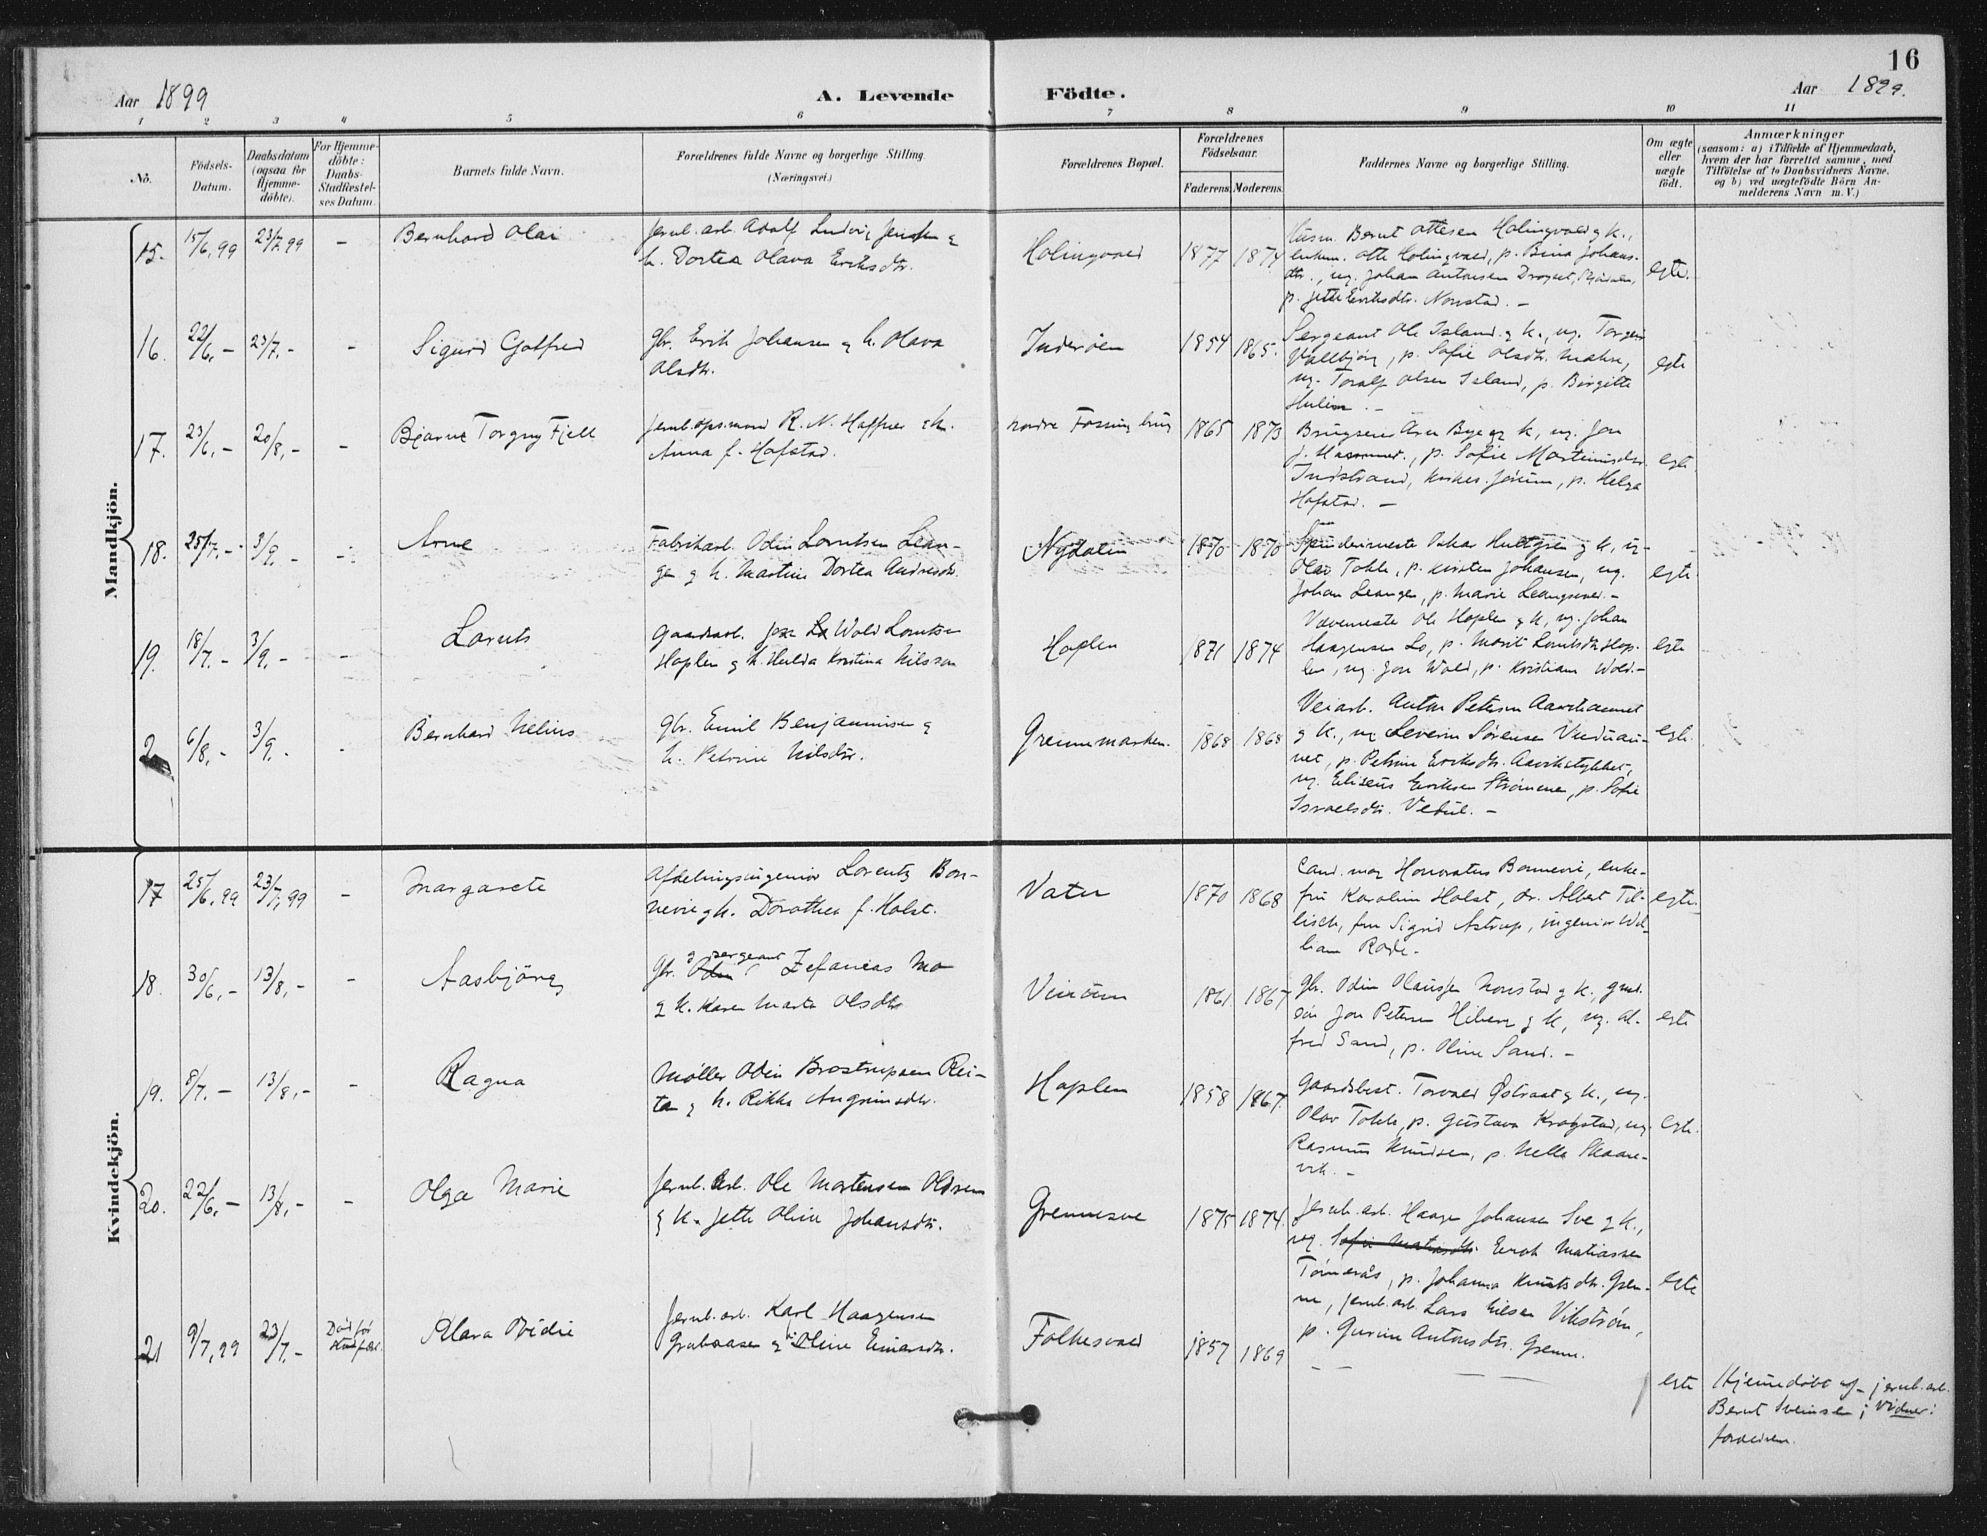 16
Aar 1899
A. Levende Födte.
Aar 1899.
1 2 3 4 5 6 7 8 9 10 11
No.
Födsels-
Datum.
Daabsdatum
(ogsaa for
Hjemme-
döbte).
For Hjemme-
döbte:
Daabs-
Stadfæstel-
ses Datum.
Barnets fulde Navn.
Forældrenes fulde Navne og borgerlige Stilling.
(Næringsvei.)
Forældrenes Bopæl.
Forældrenes
Födselsaar.
Faderens. Moderens.
Faddernes Navne og borgerlige Stilling.
Om ægte
eller
uægte
födt.
Anmærkninger
(saasom: a) i Tilfælde af Hjemmedaab,
hvem der har forrettet samme, med
Tilföielse af to Daabsvidners Navne,
og b) ved uægtefödte Börn An-
melderens Navn m. V.)
Mandkjön.
15. 15/6,99 23/7,99 - Bernhard Olai
Jernb.arb. Adolf Ludvig Jensen &
h. Dortea Olava Eriksdtr.
Holingvald 1877 1874
Husm. Bernt Ottesen Holingvald & k.,
enkem. Otte Holingvald, p. Bina Johans-
dtr., ug. Johan Antonsen Drogset,
p. Jette Eriksdtr. Norstad. -
egte.
16. 22/6,- 23/7,- - Sigurd Gotfred
Gbr. Erik Johansen & h. Olava
Olsdtr.
Inderöen 1854 1865.
Sergeant Ole Island & k., ug. Torgeir
Vallbjörg, p. Sofie Olsdtr. Mahn,
ug. Toralf Olsen Island, p. Birgitte
Hulien. -
egte
17. 23/6,- 20/8,- - Bjarne Torgny Fjell
Jernb.opsmand R. N. Haffner & h.
Anna f. Hofstad.
nordre Fosning brug 1865 1873
Brugseier Aren Bye & k, ug. Jon
J. Hammer, p. Sofie Martinusdtr.
Indstrand, kirkes. Jörum, p. Helga
Hofstad. -
egte
18. 25/7,- 3/9,- - Arne
Fabrikarb. Odin Lorntsen Lean-
gen & h. Martine Dortea Andreasdtr.
Nydalen 1870 1870
Spinderimester Oskar Hultgren & k, u-
Olav Tokle, p. Kirsten Johansen, ug.
Johan Leangen, p. Marie Leangsvald. -
egte.
19. 18/7,- 3/9,- - Lornts
Gaardarb. Wold Lorntsen
Hoplen & h. Hulda Kristina Nilsson
Hoplen 1871 1874
Vævemester Ole Hoplen & k, ug. Johan
Haagensen Lo, p. Marit Lorntsdtr. Hop-
len, ug. Jon Wold, p. Kristian Wold. -
egte
2 6/8,- 3/9,- - Bernhard Nelius
Gbr. Emil Benjaminsen &
h. Petrine Nilsdtr.
Grennemarken. 1868 1868
Veiarb. Anton Petersen Aavikaunet
& k., ug. Severin Sörensen Vuduau-
net, p. Petrine Eriksdtr. Aavikstykket,
ug. Eliseus Eriksen Strömmen, p. Sofie
Israelsdtr. Vetul. -
egte.
Kvindekjön.
17 25/6,99 23/7,99 - Margarete
Afdelingsingeniør Lorentz Bon-
nevie & h. Dorothea f. Holst.
Vatn 1870 1868
Cand. mag Honoratus Bonnevie, enke-
fru Karoline Holst, dr. Albert Til-
lisch, fru Sigrid Astrup, ingeniør Wil-
liam Rode. -
egte.
18. 30/6,- 13/8,- - Aasbjörg
Gbr. & sergeant Zefanias Mo
& h. Karen Marta Olsdtr
Vinsum 1861 1867
Gbr. Odin Olaussen Norstad & k., gmd.
sön Jon Petersen Hiberg & k, ug. Al-
fred Sand, p. Oline Sand. -
egte
19. 8/7.- 13/8,- - Ragna
Møller Odin Brostrupsen Rei-
tan & h. Rikka Angrimsdtr.
Hoplen 1858 1867.
Gaardsbest. Torvald Östraat & k., ug.
Olav Tokle, p. Gustava Krogstad, ug.
Rasmus Knudsen, p. Nella Skaane-
vik. -
egte.
20. 22/6,- 13/8,- - Olga Marie
Jernb.arb. Ole Mortensen Oldren
& h. Jette Oline Johansdtr.
Grennesve 1875 1874.
Jernb.arb. Haagen Johansen Sve & k.,
ug. Sofie Matiasdtr. Erik Matiassen
Tömmeraas, p. Johanna Knutsdtr. Gren-
ne, jernb.arb. Lars Nilsen Vikström,
p. Gurine Antonsdtr. Grenne.
egte
21 9/7,99 23/7,- Död för
Stadfæst.
Klara Ovidie
Jernb.arb. Karl Haagensen
Grubaasen & h. Oline Einarsdtr.
Folkesvald 1857 1869 - - - -
egte
Hjemmedöbt af jernb.arb.
Bernt Sveinsen; Vidner:
forældrene.